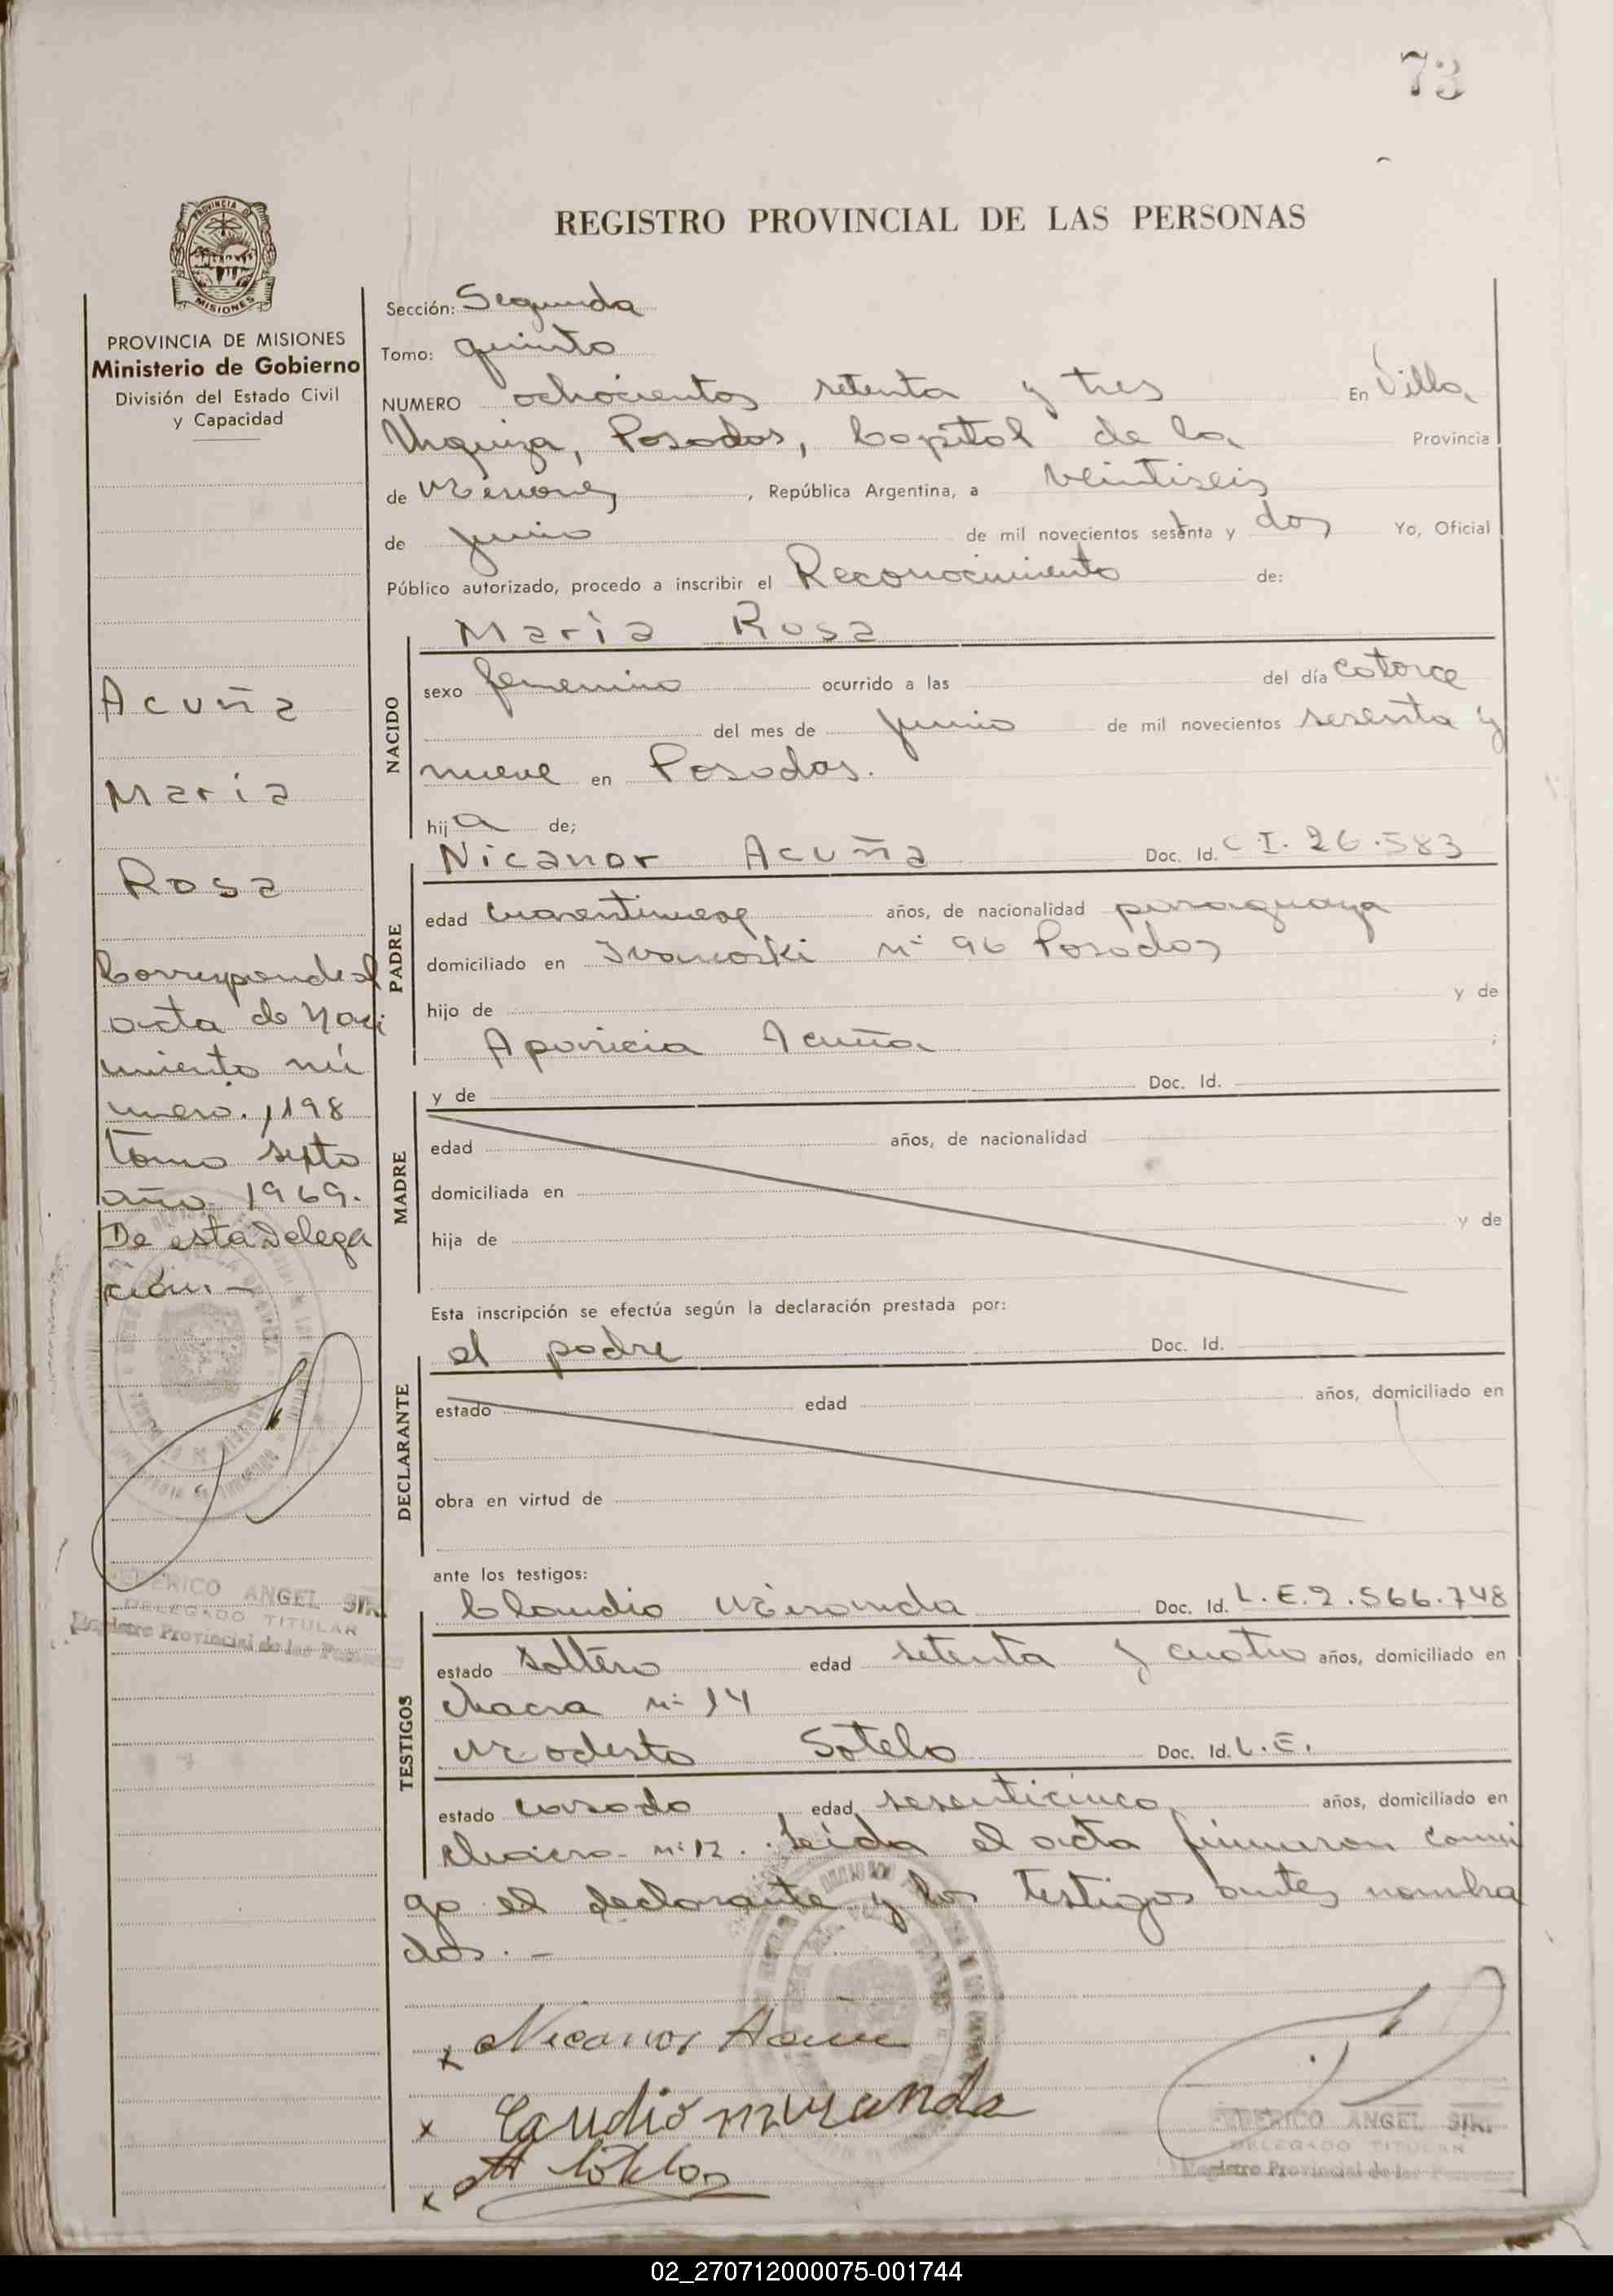 73
REGISTRO PROVINCIAL DE LAS PERSONAS
PROVINCIA DE
MISIONES
PROVINCIA DE MISIONES
Ministerio de Gobierno
División del Estado Civil
y Capacidad
Acuña
María
Rosa
Corresponde al
acta de Naci
miento nú
mero. 1198
tomo sexto
año 1969.
De esta Delega
ción. -
ERICO ANGEL
DELEGADO TITULAR
Registro Provincial de las Personas
Sección: Segunda
Tomo: quinto
NUMERO ochocientos setenta y tres En Villa
Urquiza, Posadas, Capital de la Provincia
de Misiones, República Argentina, a veintiseis
de junio de mil novecientos sesenta y dos Yo, Oficial
Público autorizado, procedo a inscribir el Reconocimiento de:
María Rosa
NACIDO
sexo femenino ocurrido a las del día catorce
del mes de junio de mil novecientos sesenta y
nueve en Posadas.
hija de;
PADRE
Nicanor Acuña Doc. Id. C I. 26.583
edad cuarentinueve años, de nacionalidad paraguaya
domiciliado en Ivanoski nº 96 Posadas
hijo de y de
Aparicia Acuña ;
MADRE
y de Doc. Id.
edad años, de nacionalidad
domiciliada en
hija de y de
Esta inscripción se efectúa según la declaración prestada por:
DECLARANTE
el padre Doc. Id.
estado edad años, domiciliado en
obra en virtud de
ante los testigos:
TESTIGOS
Claudio Miranda Doc. Id. L.E.2.566.748
estado soltero edad setenta y cuatro años, domiciliado en
chacra nº 14
Modesto Sotelo Doc. Id. L.E.
estado casado edad sesenticinco años, domiciliado en
chacra nº 12. Leida el acta firmaron conmi
go el declarante y los testigos antes nombra
dos. -
x Nicanor Acuña
x Claudio miranda
x M Sotelo
ERICO ANGEL
DELEGADO TITULAR
Registro Provincial de las Personas
02_270712000075-001744